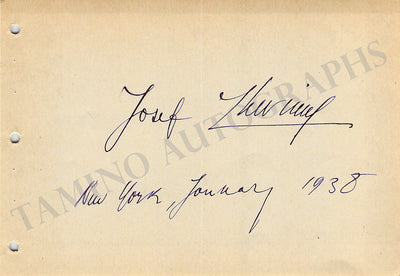 Josef
New York, January 1938
TAMINO AUTOGRAPHS